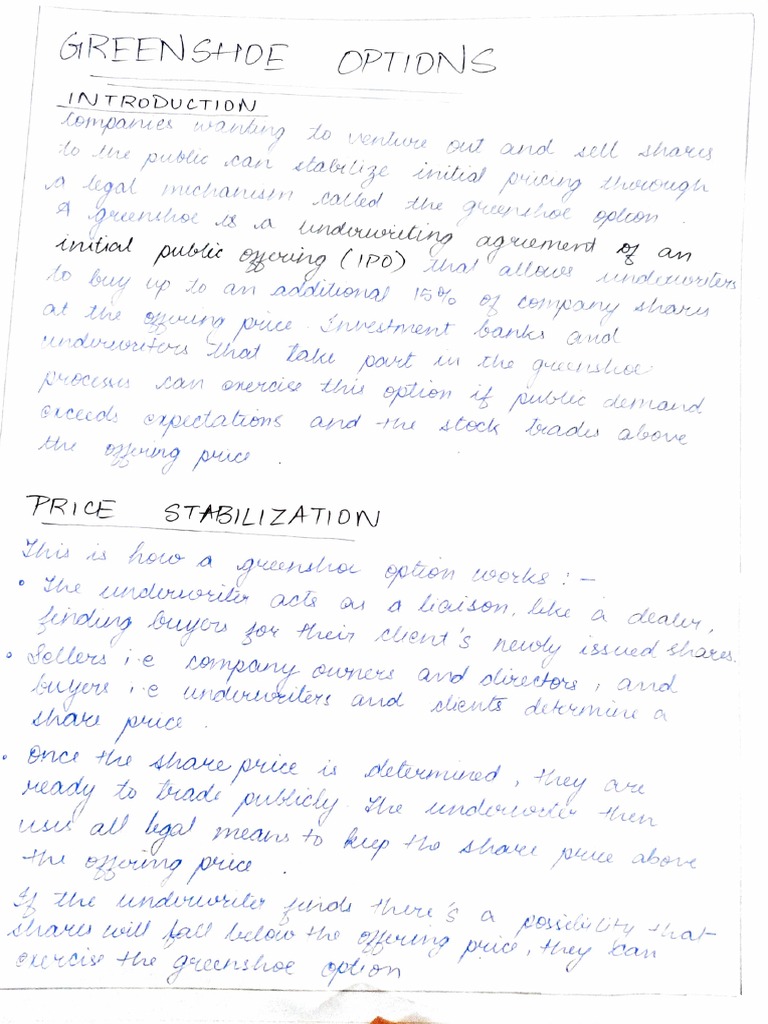 GREENSHOE OPTIONS
INTRODUCTION
Companies wanting to venture out and sell shares
to the public can stabilize initial pricing through
a legal mechanism called the greenshoe option.
A greenshoe is a underwriting agreement of an
initial public offering (IPO) that allows underwriters
to buy up to an additional 15% of company shares
at the offering price. Investment banks and
underwriters that take part in the greenshoe
process can exercise this option if public demand
exceeds expectations and the stock trades above
the offering price.
PRICE STABILIZATION
This is how a greenshoe option works :-
• The underwriter acts as a liaison, like a dealer,
finding buyers for their client's newly issued shares.
• Sellers i.e company owners and directors, and
buyers i.e underwriters and clients determine a
share price.
• Once the share price is determined, they are
ready to trade publicly. The underwriter then
uses all legal means to keep the share price above
the offering price.
If the underwriter finds there's a possibility that
shares will fall below the offering price, they can
exercise the greenshoe option